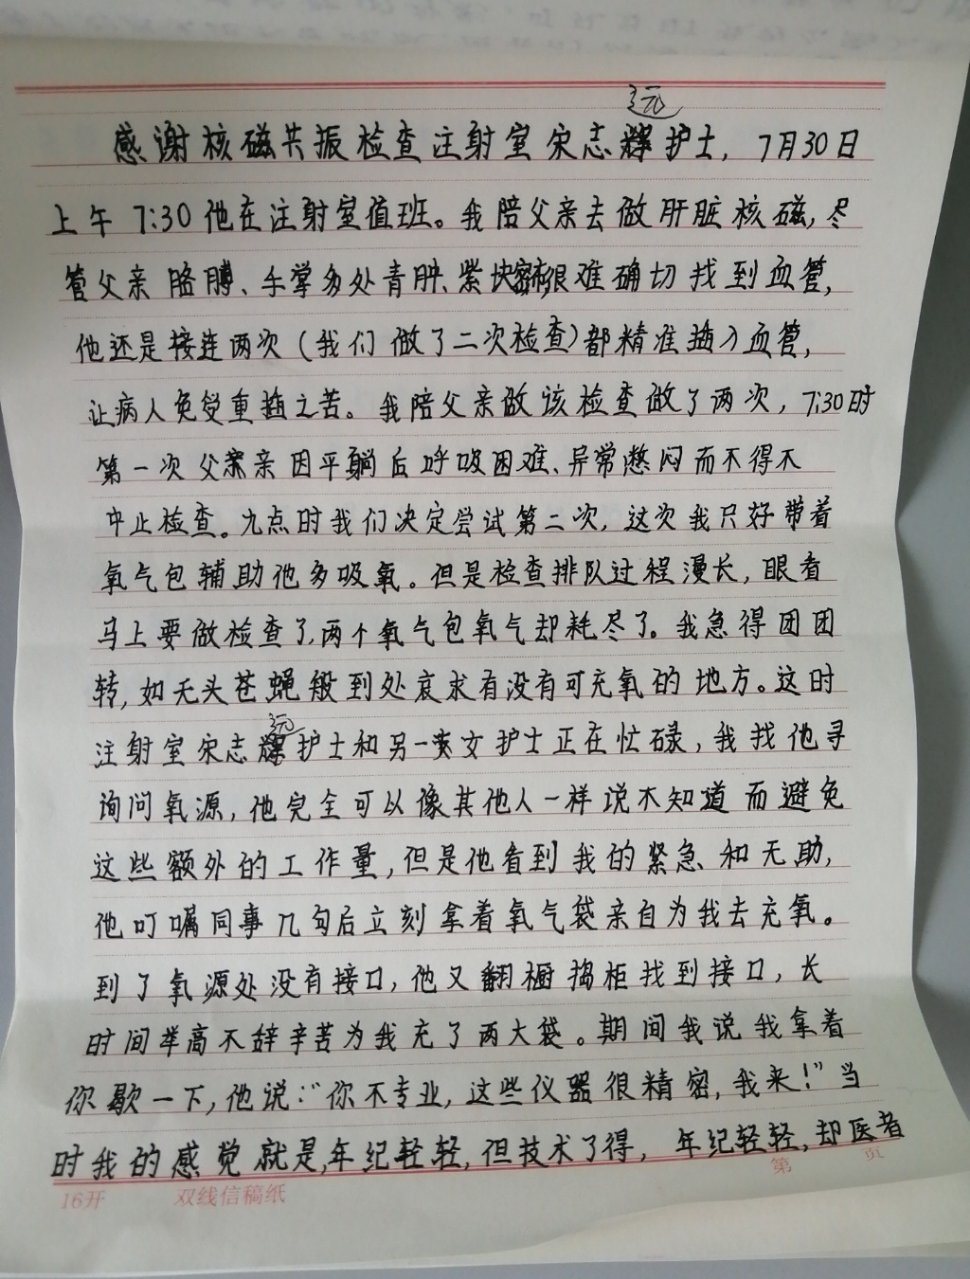 感谢核磁共振检查注射室宋志远护士，7月30日
上午7:30他在注射室值班。我陪父亲去做肝脏核磁，尽
管父亲胳膊、手掌多处青肿、紫块密布很难确切找到血管，
他还是接连两次（我们做了二次检查）都精准插入血管，
让病人免受重插之苦。我陪父亲做该检查做了两次，7:30时
第一次父亲因平躺后呼吸困难、异常憋闷而不得不
中止检查。九点时我们决定尝试第二次，这次我只好带着
氧气包辅助他多吸氧。但是检查排队过程漫长，眼看
马上要做检查了，两个氧气包氧气却耗尽了。我急得团团
转，如无头苍蝇般到处哀求有没有可充氧的地方。这时
注射室宋志远护士和另一女护士正在忙碌，我找他寻
询问氧源，他完全可以像其他人一样说不知道而避免
这些额外的工作量，但是他看到我的紧急和无助，
他叮嘱同事几句后立刻拿着氧气袋亲自为我去充氧。
到了氧源处没有接口，他又翻橱捣柜找到接口，长
时间举高不辞辛苦为我充了两大袋。期间我说我拿着
你歇一下，他说：“你不专业，这些仪器很精密，我来！”当
时我的感觉就是，年纪轻轻，但技术了得，年纪轻轻，却医者
16开 双线信稿纸 第 页